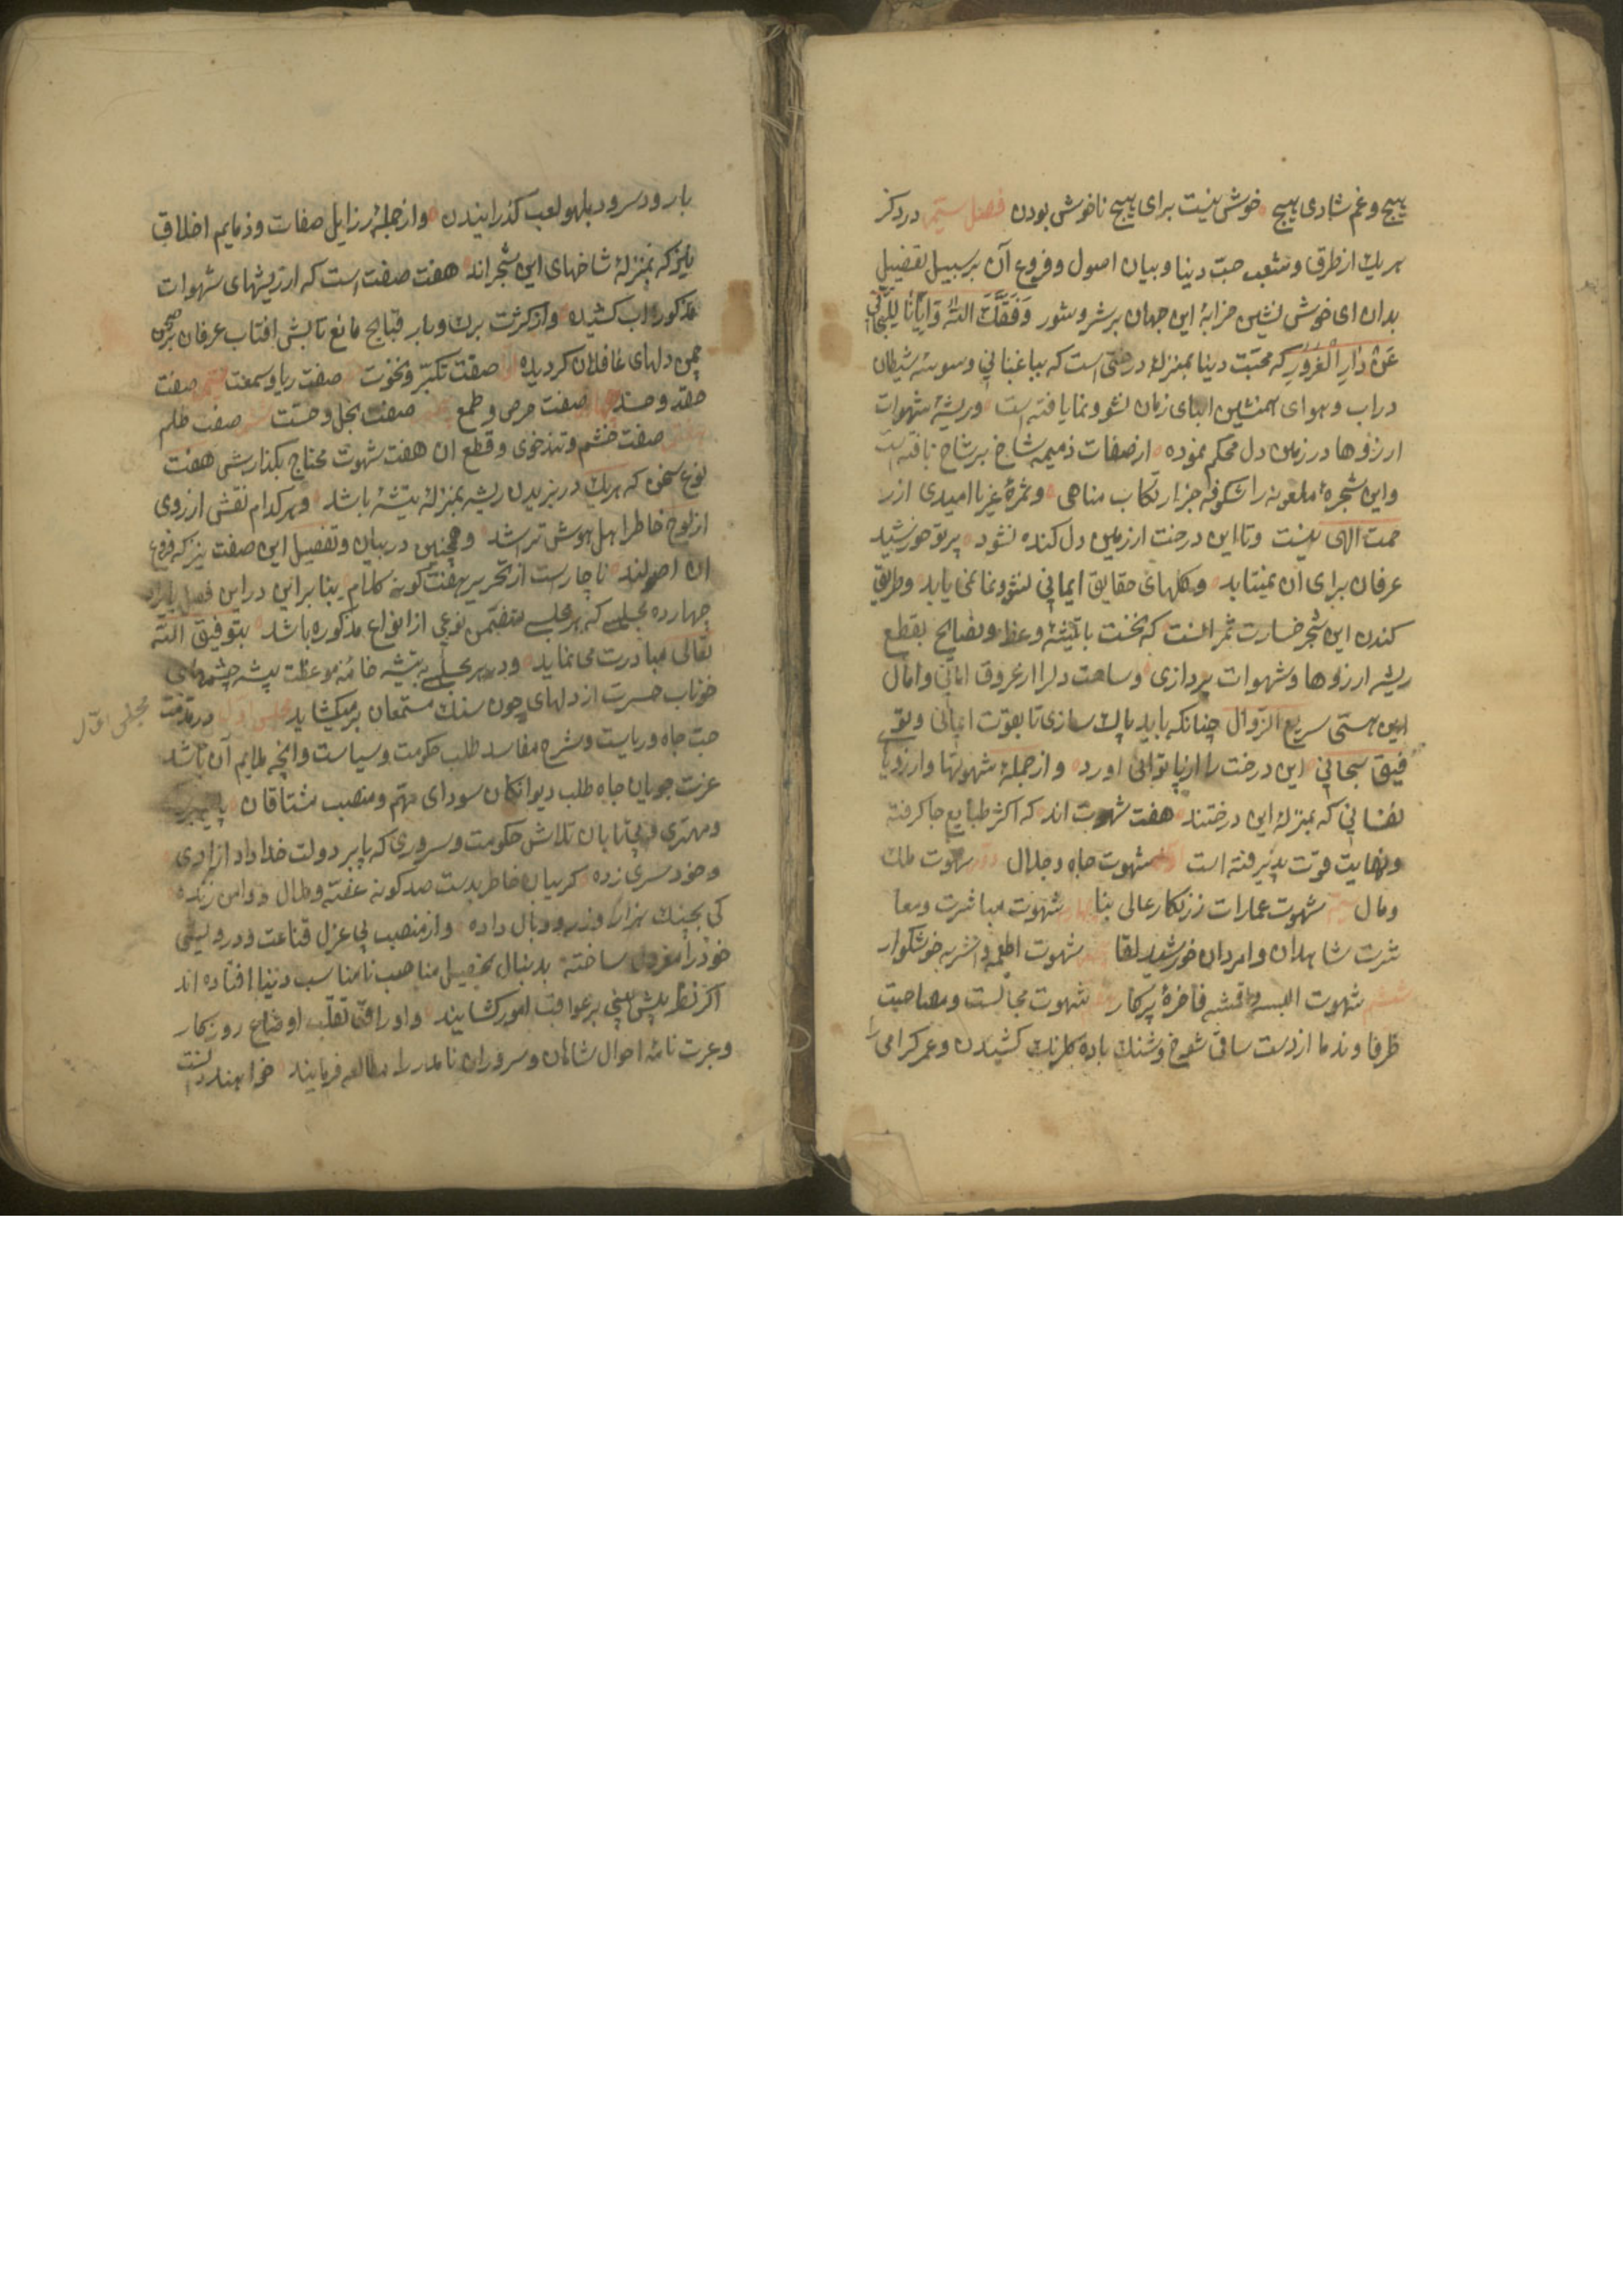 هیچ و غم شادی هیچ خوش نیست برای هیچ ناخوش بودن فصل سیم در ذکر
هریک از طرق و شعب حب دنیا و بیان اصول و فروع آن بر سبیل تفضیل
بدان ای خوش نشین خرابهٔ این جهان پر شر و شور وَفَّقَكَ اللّٰه وَاِیّانا لِلتَّجافی
عَن دارِ الْغُرُورِ که محبّت دنیا بمنزلهٔ درختی است که بباغبانی وسوسهٔ شیطان
در آب و هوای همنشین ابنای زمان نشو و نما یافته است و ریشهٔ شهوات
ارزوها در زمین دل محکم نموده از صفات ذمیمه شاخ بر شاخ بافته است
و این شجرهٔ ملعونه را شکوفه جز ارتکاب مناهی و ثمرهٔ غیر نا امیدی از ر
حمت الهی نیست و تا این درخت از زمین دل کنده نشود پرتو خورشید
عرفان برای ان نمیتابد و گلهای حقایق ایمانی نشو و نما نمی یابد و طریق
کندن این شجر خسارت ثمر انست که نخست با تیشهٔ وعظ و نصایح بقطع
ریشه ارزوها و شهوات پردازی و ساحت دلرا از عروق امانی و امال
این هستی سریع الزّوال چنانکه باید پاک سازی تا بقوّت ایمانی و تو
فیق سبحانی این درخت را از پا توانی اورد و از جملهٔ شهوتها و ارزویها
نفسانی که بمنزلهٔ این درختند هفت شهوت اند که اکثر طبایع جا گرفته
و نهایت قوّت پذیرفته است شهوت جاه و جلال شهوت ملک
و مال شهوت عمارات زرنکار عالی بنا شهوت مباشرت و معا
شرت شاهدان و امردان خورشید لقا شهوت اطعمه و اشربه خوشکوار
ششم شهوت البسه و اقمشه فاخرهٔ پرکار شهوت مجالست و مصاحبت
ظرفا و ندما از دست ساقی شوخ و شنک باده گلرنک کشیدن و عمر کرامی را
بار ود سرود بلهو لعب کذرانیدن و از جملهٔ رزایل صفات و ذمایم اخلاق
نیز که بمنزلهٔ شاخهای این شجراند هفت صفت است که از ریشهای شهوات
مذکوره اب کشیده و از کثرت برک و بار قبایح مانع تابش افتاب عرفان بر صحن
چمن دلهای غافلان کردیده صفت تکبّر و نخوت صفت ریا و سمعت سیم صفت
حقد و حسد صفت حرص و طمع صفت بخل و خسّت صفت ظلم
هفتم صفت خشم و تندخوی و قطع ان هفت شهوت محتاج بکذارش هفت
نوع سخن که هریک در بریدن ریشه بمنزلهٔ تیشهٔ باشد و هرکدام نقش ارزوی
از لوح خاطر اهل هوش تراشد و همچنین در بیان و تفصیل این صفت نیز که فروع
ان اصولند ناچار است از تحریر هفت کونه کلام بنا براین در این فصل بایراد
چهارده مجلسی که هر مجلسی متضمّن نوعی از انواع مذکوره باشد بتوفیق اللّه
تعالی مبادرت می نماید و در هر مجلسی به تیشه خامهٔ موعظت پیشه چشمهای
خوناب حسرت از دلهای چون سنک مستمعان برمیکشاید مجلس اول در مذمّت
مجلس اوّل
حبّ جاه و ریاست و شرح مفاسد طلب حکومت و سیاست و انچه ملایم آن باشد
عزّت جویان جاه طلب دیوانکان سودای مهتم و منصب مشتاقان
و مهتری و بی تابان تلاش حکومت و سروری که پا بر دولت خداداد ازادی
و خود سری زده کریبان خاطر بدست صد کونه غصّه و ملال و دامن زنده
کی بچنک هزار وزر و وبال داده و از منصب بی عزل قناعت و درویشی
خود را معزول ساخته بدنبال تحصیل مناصب نامناسب دنیا افتاده اند
اکر نظر پیش بینی بر عواقب امور کشایند و اوراق تقلّب اوضاع روزکار
و عبرت نامهٔ احوال شاهان و سروران نامدار را مطالعه فرمایند خواهند دانست